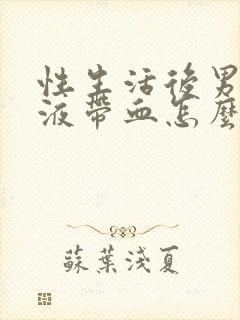 性生活後男
液帶血怎麼
蘇葉淺夏